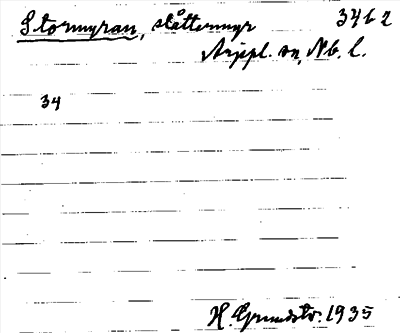 Stormyran, slåttermyr 3462
Arjepl. sn, Nb. l.
34
H. Grundstr. 1935